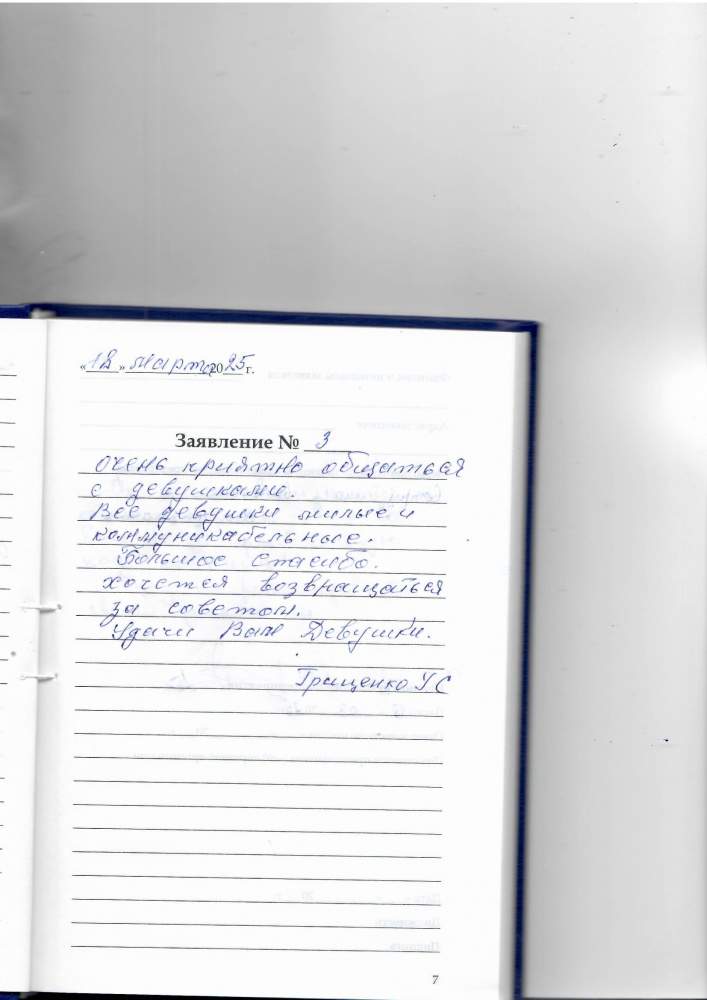 «18» марта 2025 г.
Заявление № 3
очень приятно общаться
с девушками.
Все девушки милые и
коммуникабельные.
Большое спасибо.
хочется возвращаться
за советом.
Удачи Вам Девушки.
Гращенко УС
7